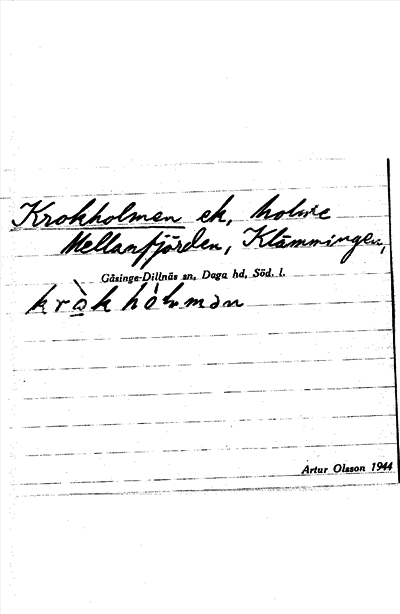 Krokholmen ek, holme
Mellanfjärden, Klämmingen,
Gåsinge-Dillnäs sn, Daga hd, Söd. l.
kròkhòlmən
Artur Olsson 1944